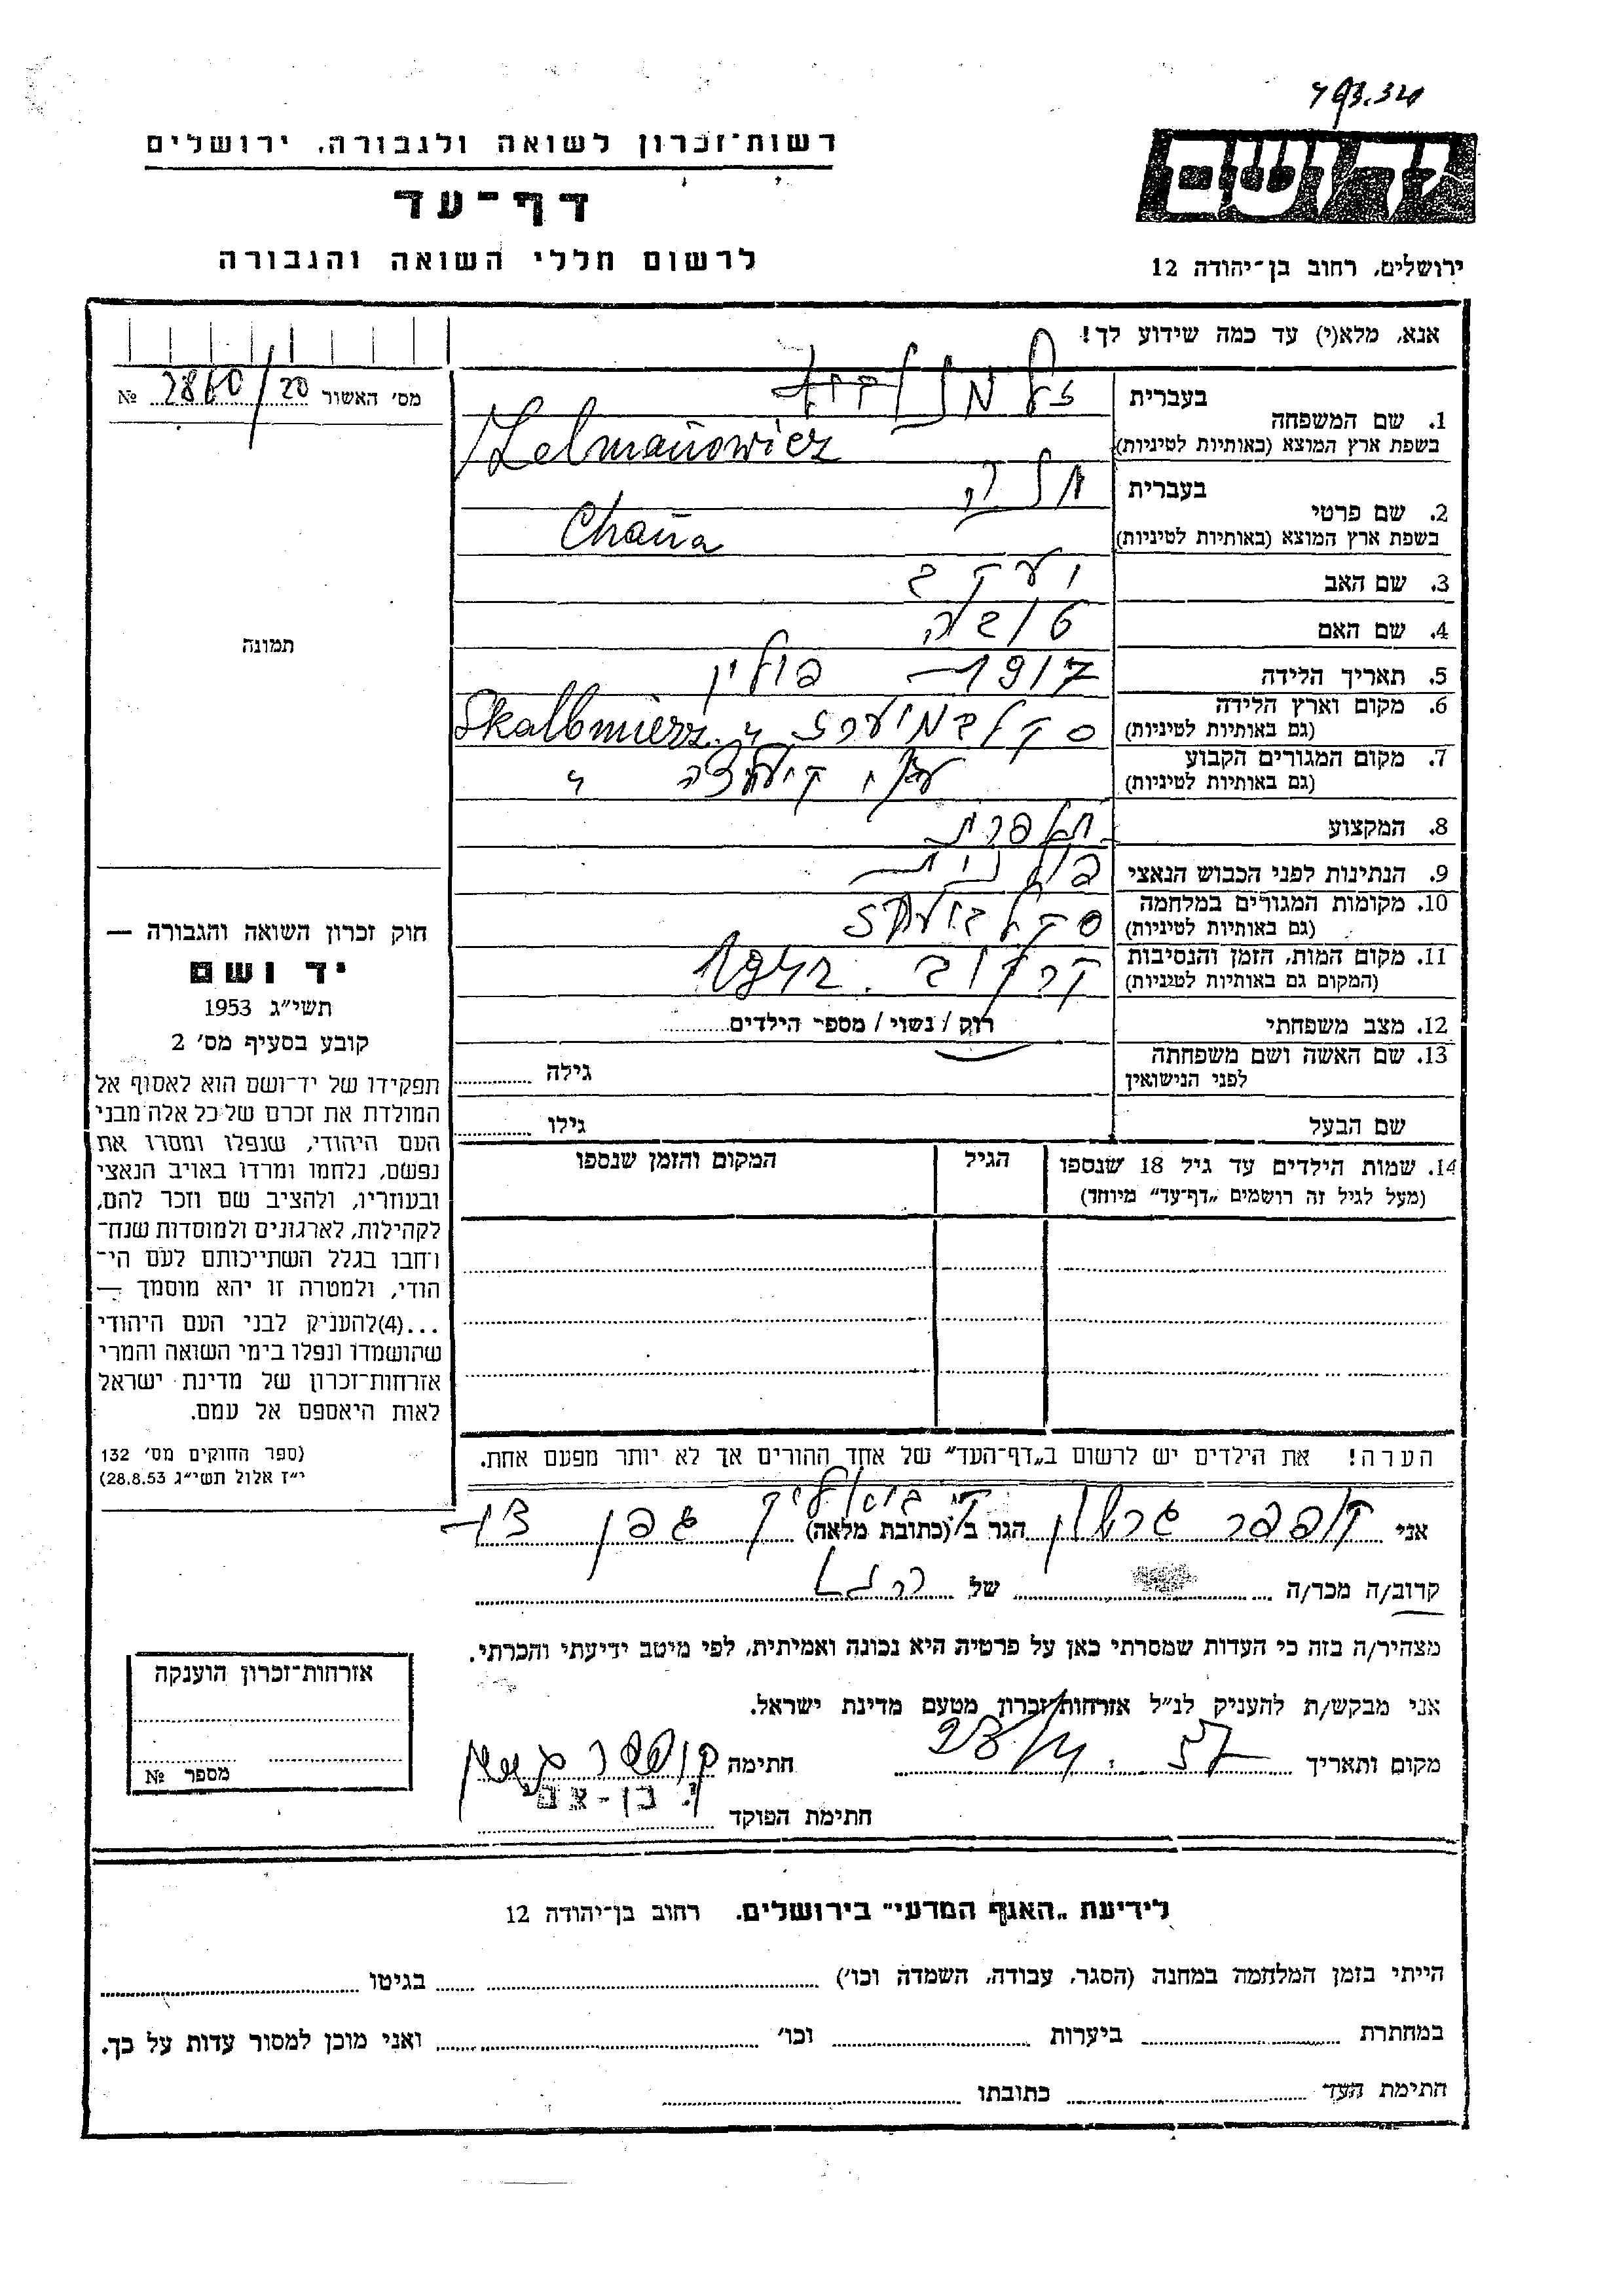 רשות־זכרון לשואה ולגבורה, ירושלים
דף־עד
לרשום חללי השואה והגבורה
ידושם
ירושלים, רחוב בן־יהודה 12
אנא, מלא(י) עד כמה שידוע לך!
מס׳ האשור 20/2860 №
תמונה
1. שם המשפחה
בעברית
בשפת ארץ המוצא (באותיות לטיניות) Zelmanowicz
2. שם פרטי
בעברית חנה
בשפת ארץ המוצא (באותיות לטיניות) Chana
3. שם האב יעקב
4. שם האם טובה
5. תאריך הלידה 1917 פולין
6. מקום וארץ הלידה
(גם באותיות לטיניות) Skalbmierz
7. מקום המגורים הקבוע
(גם באותיות לטיניות) ע״י
8. המקצוע תופרת
9. הנתינות לפני הכבוש הנאצי פולנית
10. מקומות המגורים במלחמה
(גם באותיות לטיניות)
11. מקום המות, הזמן והנסיבות
(המקום גם באותיות לטיניות) קרקוב. 1942
12. מצב משפחתי רוק / נשוי / מספר הילדים
13. שם האשה ושם משפחתה
לפני הנישואין גילה
שם הבעל גילו
14. שמות הילדים עד גיל 18 שנספו
(מעל לגיל זה רושמים „דף־עד״ מיוחד)
הגיל
המקום והזמן שנספו
הערה! את הילדים יש לרשום ב„דף־העד״ של אחד ההורים אך לא יותר מפעם אחת.
חוק זכרון השואה והגבורה —
יד ושם
תשי״ג 1953
קובע בסעיף מס׳ 2
תפקידו של יד־ושם הוא לאסוף אל
המולדת את זכרם של כל אלה מבני
העם היהודי, שנפלו ומסרו את
נפשם, נלחמו ומרדו באויב הנאצי
ובעוזריו, ולהציב שם וזכר להם,
לקהילות, לארגונים ולמוסדות שנח־
רחבו בגלל השתייכותם לעם הי־
הודי, ולמטרה זו יהא מוסמך —
...(4)להעניק לבני העם היהודי
שהושמדו ונפלו בימי השואה והמרי
אזרחות־זכרון של מדינת ישראל
לאות היאספם אל עמם.
(ספר החוקים מס׳ 132
י״ז אלול תשי״ג 28.8.53)
אני קופפר הגר ב (כתובת מלאה)
קרוב/ה מכר/ה של
מצהיר/ה בזה כי העדות שמסרתי כאן על פרטיה היא נכונה ואמיתית, לפי מיטב ידיעתי והכרתי.
אני מבקש/ת להעניק לנ״ל אזרחות־זכרון מטעם מדינת ישראל.
מקום ותאריך חתימה
חתימת הפוקד
אזרחות־זכרון הוענקה
מספר №
לידיעת „האגף המדעי״ בירושלים. רחוב בן־יהודה 12
הייתי בזמן המלחמה במחנה (הסגר, עבודה, השמדה וכו׳) בגיטו
במחתרת ביערות וכו׳ ואני מוכן למסור עדות על כך.
חתימת העד כתובתו